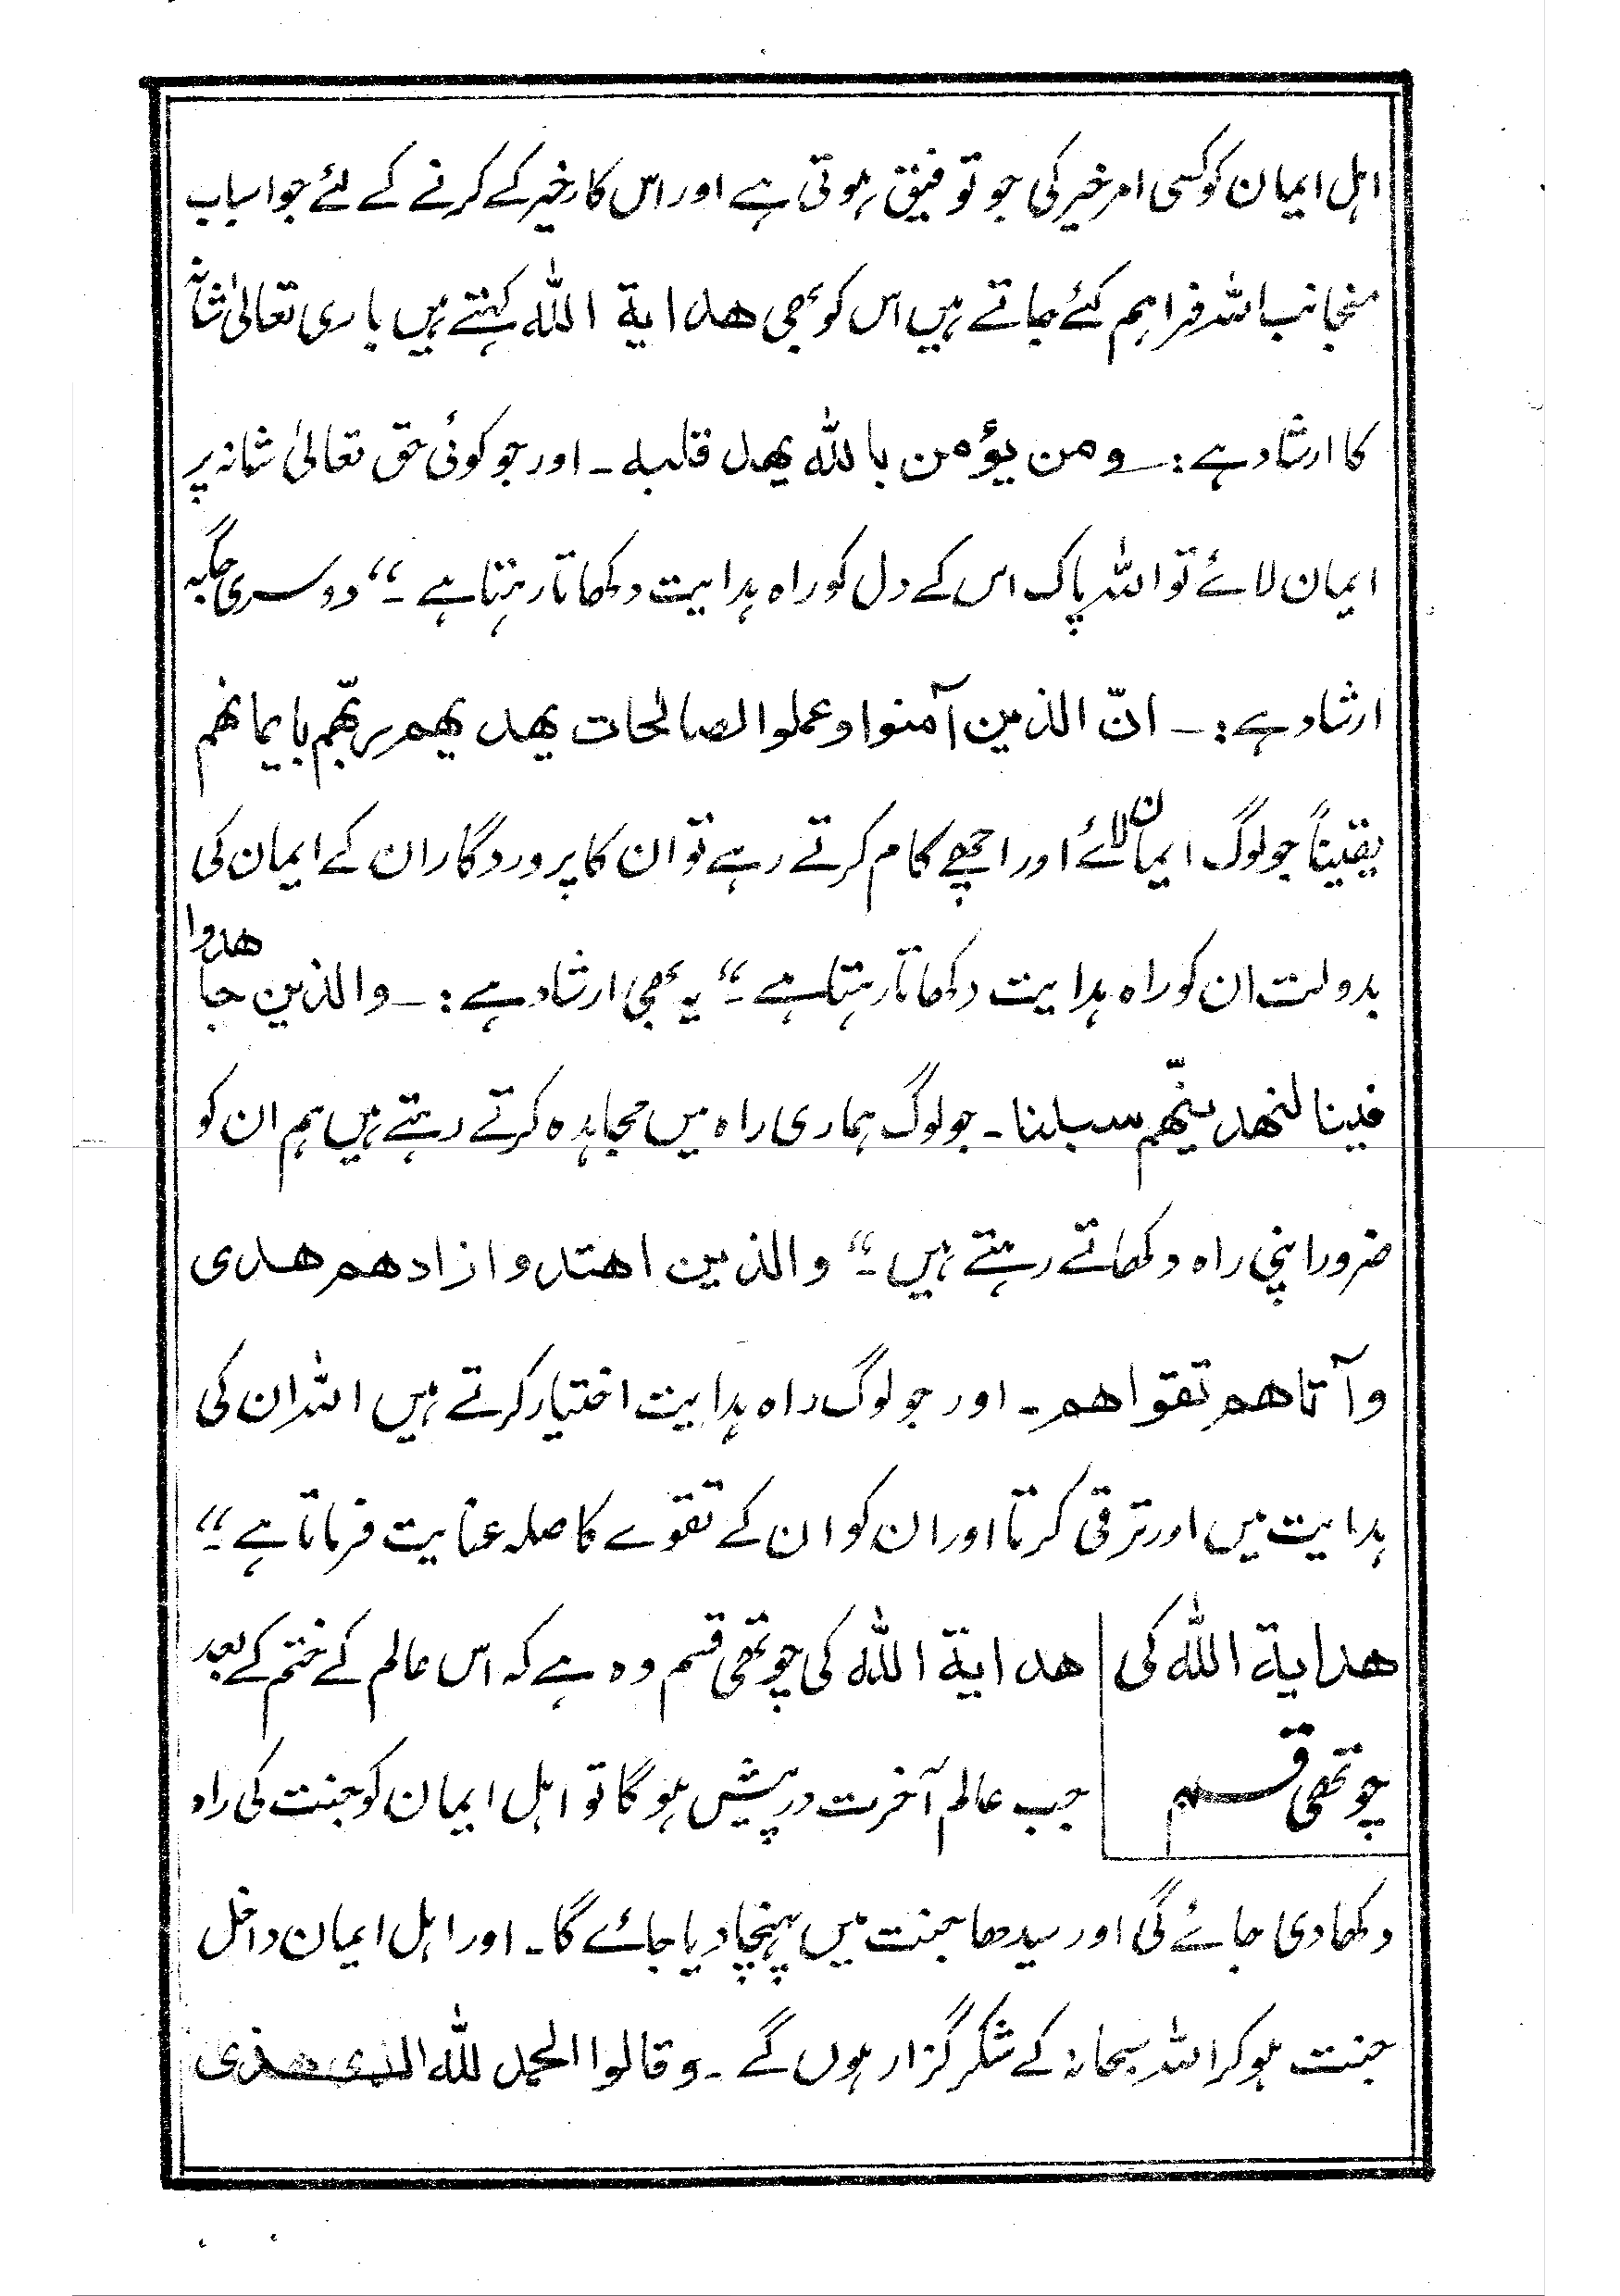 اہل ایمان کو کسی امر خیر کی جو توفیق ہوتی ہے اور اس کارخیر کے کرنے کے لئے جو اسباب
منجانب اللہ فراہم کئے جاتے ہیں اس کو بھی ھدایة اللّٰہ کہتے ہیں باری تعالیٰ شانہٗ
کا ارشاد ہے :۔ ومن یؤمن باللّٰہ یھد قلبہ ۔ اور جو کوئی حق تعالیٰ شانہ پر
ایمان لائے تو اللہ پاک اس کے دل کو راہ ہدایت دکھاتا رہتا ہے ۔“ دوسری جگہ
ارشاد ہے :۔ انّ الذین آمنوا وعملوا لصالحات یھدیھم ربّھم بایمانھم
یقیناً جو لوگ ایمان لائے اور اچھے کام کرتے رہے تو ان کا پروردگار ان کے ایمان کی
بدولت ان کو راہ ہدایت دکھاتا رہتا ہے ۔“ یہ بھی ارشاد ہے :۔ والذین جاھدوا
فینا لنھدینّھم سبلنا ۔ جو لوگ ہماری راہ میں مجاہدہ کرتے رہتے ہیں ہم ان کو
ضرور اپنی راہ دکھاتے رہتے ہیں ۔“ والذین اھتدوا زادھم ھدی
وآتاھم تقواھم ۔ اور جو لوگ راہ ہدایت اختیار کرتے ہیں اللہ ان کی
ہدایت میں اور ترقی کرتا اور ان کو ان کے تقوے کا صلہ عنایت فرماتا ہے ۔“
ھدایة اللّٰہ کی
چوتھی قسم
ھدایة اللّٰہ کی چوتھی قسم وہ ہے کہ اس عالم کے ختم کے بعد
جب عالم آخرت درپیش ہو گا تو اہل ایمان کو جنت کی راہ
دکھادی جائے گی اور سیدھا جنت میں پہنچا دیا جائے گا ۔ اور اہل ایمان داخل
جنت ہو کر اللہ سبحانہ کے شکر گزار ہوں گے ۔ وقالوا الحمد للّٰہ الذی ھذی